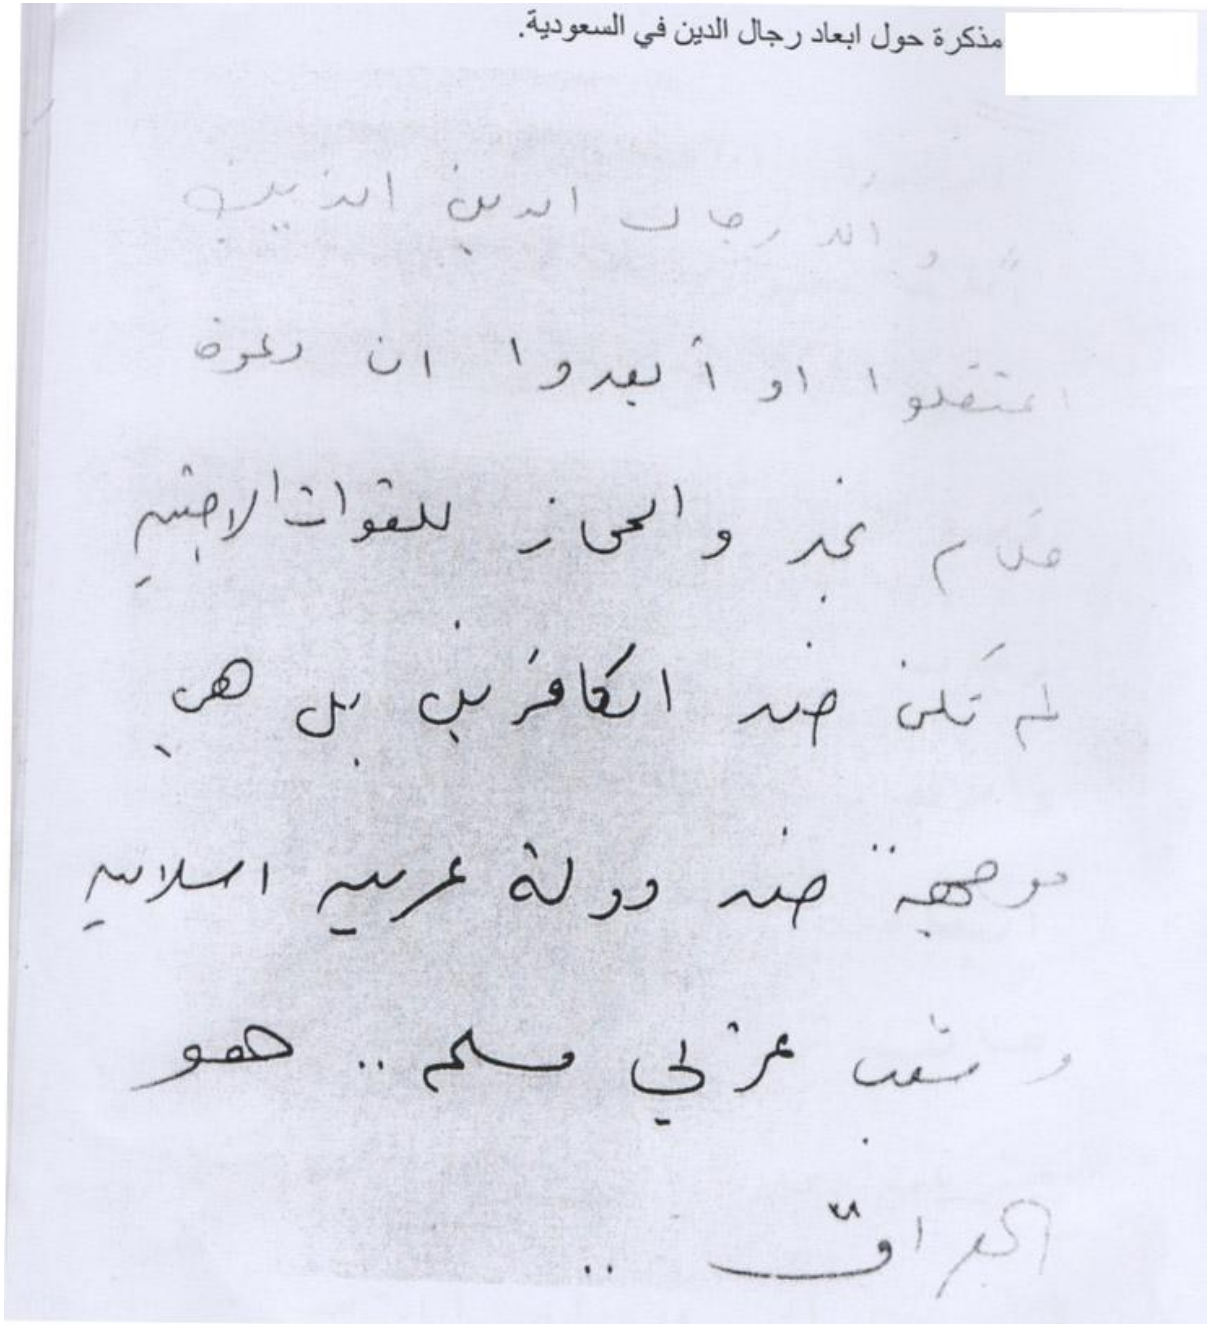 مذكرة حول ابعاد رجال الدين في السعودية.
" و أكد رجال الدين الذين
اعتقلوا او أبعدوا ان دعوة
حكام نجد والحجاز للقوات الاجنبيه
لم تكن ضد الكافرين بل هي
موجهة ضد دولة عربيه اسلاميه
و شعب عربي مسلم .. هو
العراق ..